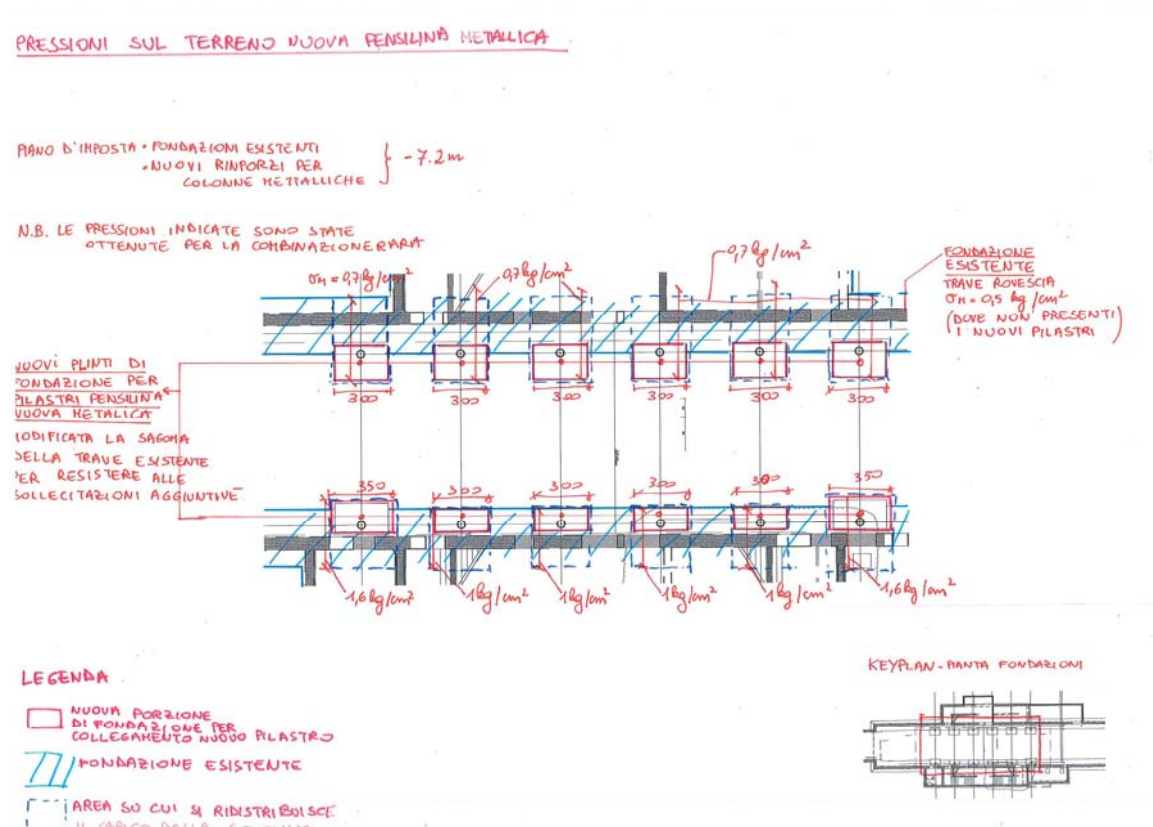 PRESSIONI SUL TERRENO NUOVA PENSILINA METALLICA
PIANO D'IMPOSTA • FONDAZIONI ESISTENTI
• NUOVI RINFORZI PER
COLONNE METTALLICHE
} -7.2m
N.B. LE PRESSIONI INDICATE SONO STATE
OTTENUTE PER LA COMBINAZIONE RARA
σM = 0,7 kg/cm²
0,7 kg/cm²
0,7 kg/cm²
FONDAZIONE
ESISTENTE
TRAVE ROVESCIA
σM = 0,5 kg/cm²
(DOVE NON PRESENTI
I NUOVI PILASTRI)
NUOVI PLINTI DI
FONDAZIONE PER
PILASTRI PENSILINA
NUOVA METALICA
MODIFICATA LA SAGOMA
DELLA TRAVE ESISTENTE
PER RESISTERE ALLE
SOLLECITAZIONI AGGIUNTIVE
300 300 300 300 300 300
350 300 300 300 300 350
1,6 kg/cm² 1 kg/cm² 1 kg/cm² 1 kg/cm² 1 kg/cm² 1,6 kg/cm²
KEYPLAN - PIANTA FONDAZIONI
LEGENDA
NUOVA PORZIONE
DI FONDAZIONE PER
COLLEGAMENTO NUOVO PILASTRO
FONDAZIONE ESISTENTE
AREA SU CUI SI RIDISTRIBUISCE
IL CARICO DALLA